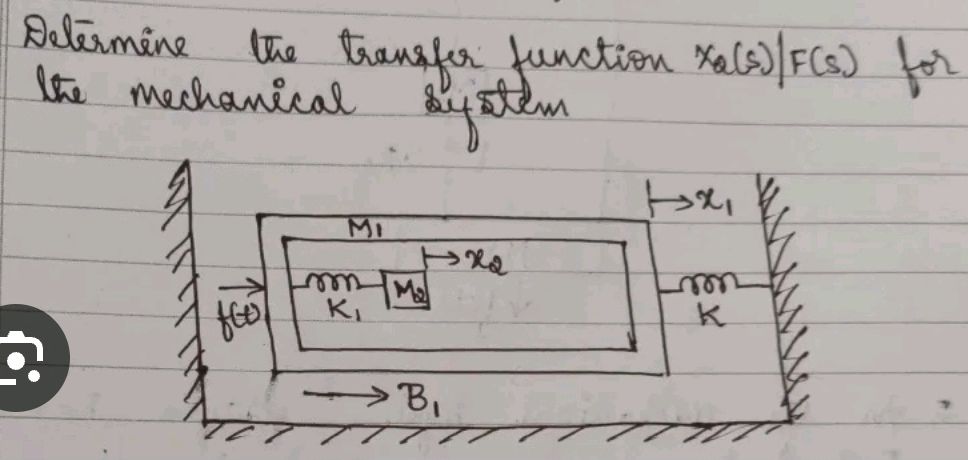 Determine the transfer function X2(s)/F(s) for
the mechanical system
→x1
M1
→x2
K1
M2
f(t)
K
→ B1